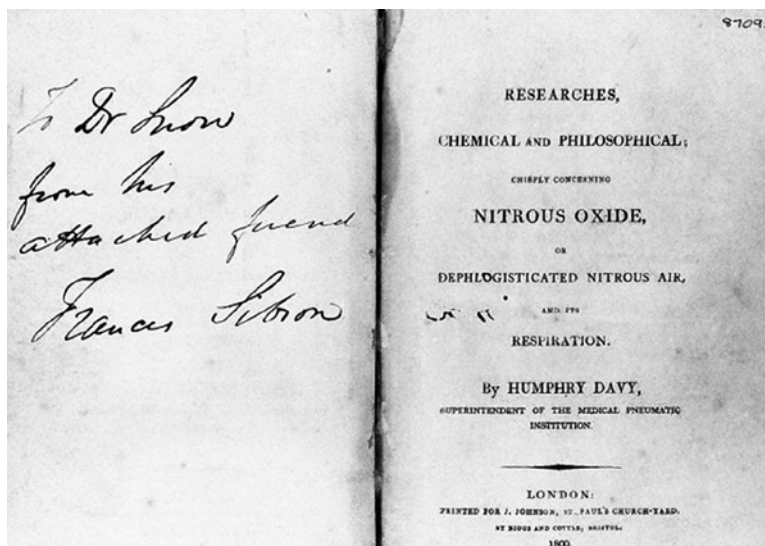 To Dr Snow
from his
attached friend
Francis Sibson
8709
RESEARCHES,
CHEMICAL AND PHILOSOPHICAL;
CHIEFLY CONCERNING
NITROUS OXIDE,
OR
DEPHLOGISTICATED NITROUS AIR,
AND ITS
RESPIRATION.
By HUMPHRY DAVY,
SUPERINTENDENT OF THE MEDICAL PNEUMATIC
INSTITUTION.
LONDON:
PRINTED FOR J. JOHNSON, ST. PAUL'S CHURCH-YARD.
BY BIGGS AND COTTLE, BRISTOL.
1800.